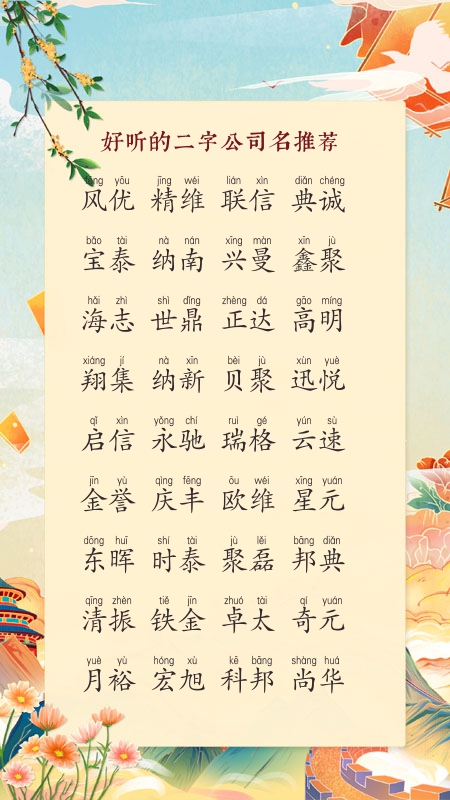 好听的二字公司名推荐
fēng yōu jīng wéi lián xìn diǎn chéng
风优 精维 联信 典诚
bǎo tài nà nán xīng màn xīn jù
宝泰 纳南 兴曼 鑫聚
hǎi zhì shì dǐng zhèng dá gāo míng
海志 世鼎 正达 高明
xiáng jí nà xīn bèi jù xùn yuè
翔集 纳新 贝聚 迅悦
qǐ xìn yǒng chí ruì gé yún sù
启信 永驰 瑞格 云速
jīn yù qìng fēng ōu wéi xīng yuán
金誉 庆丰 欧维 星元
dōng huī shí tài jù lěi bāng diǎn
东晖 时泰 聚磊 邦典
qīng zhèn tiě jīn zhuó tài qí yuán
清振 铁金 卓太 奇元
yuè yù hóng xù kē bāng shàng huá
月裕 宏旭 科邦 尚华